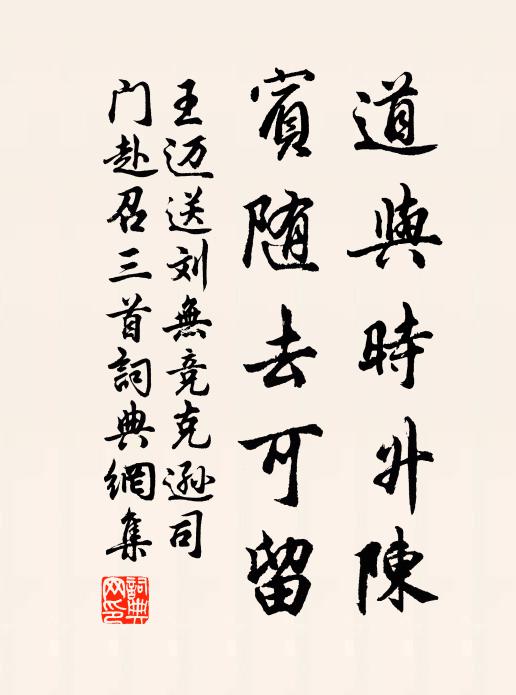 道與時升陳
賓随去可留
王迈送刘無竞克遜司
门赴召三首詞典網集